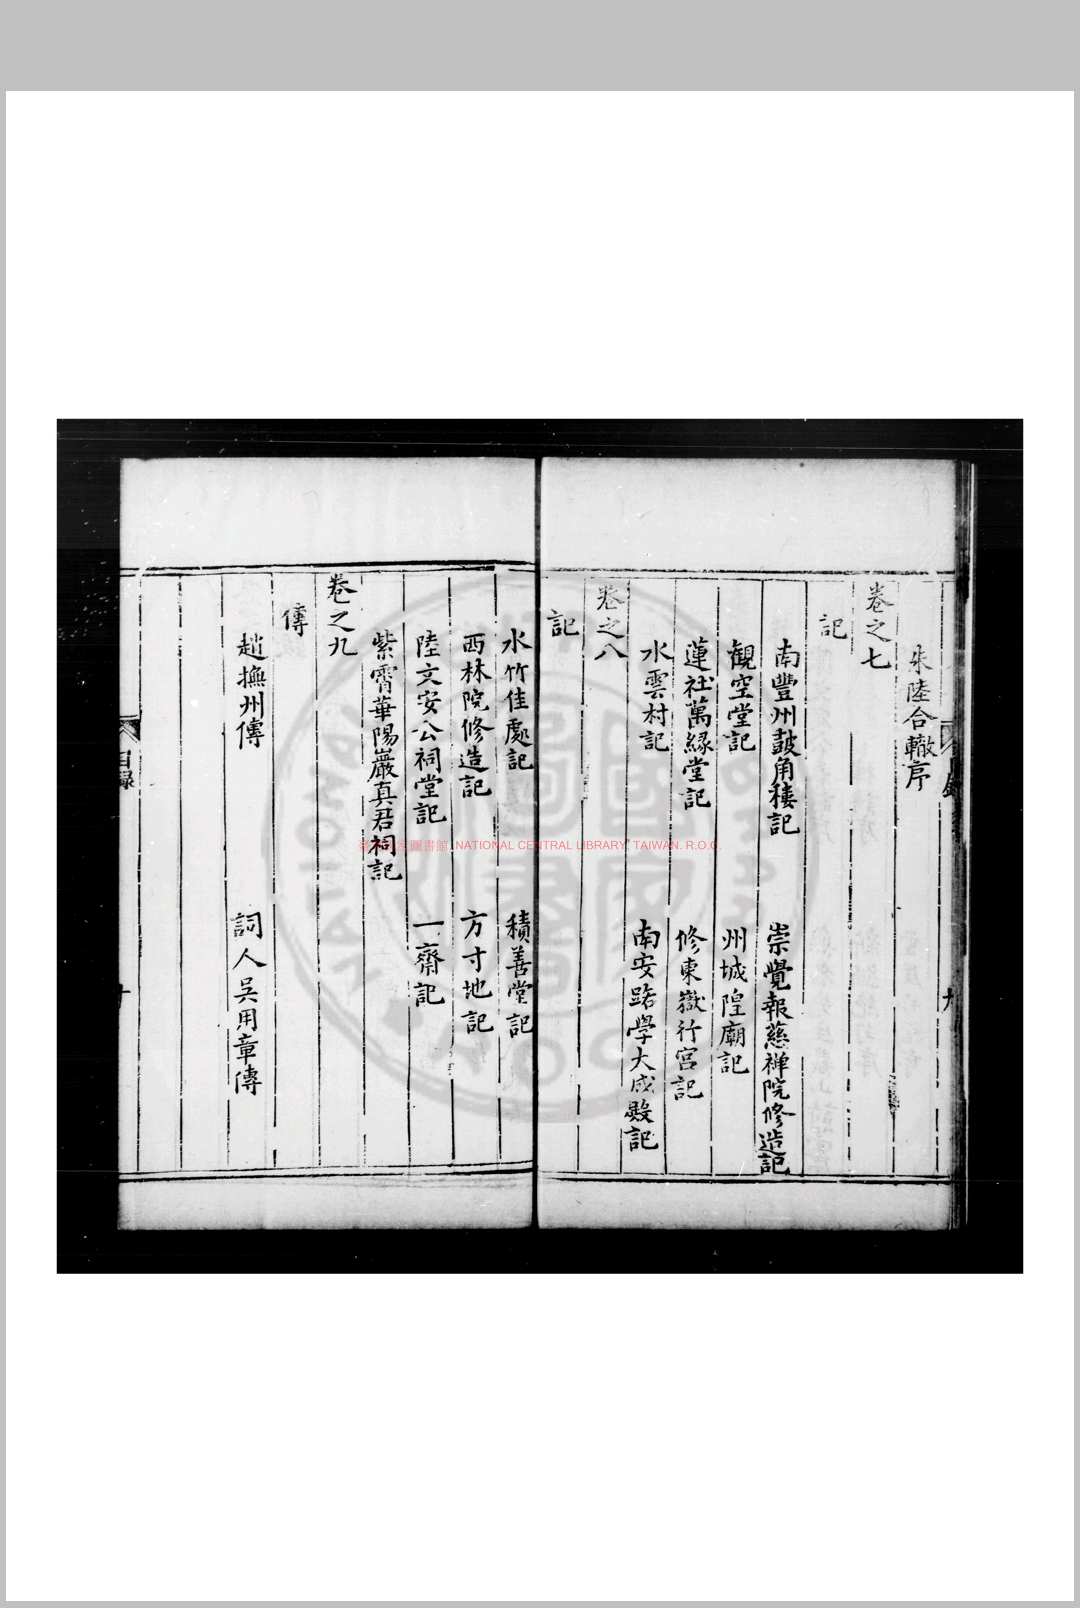 朱陸合轍序
卷之七
記
南豐州皷角樓記　崇覺報慈禪院修造記
觀空堂記　州城隍廟記
蓮社萬緣堂記　修東嶽行宮記
水雲村記　南安路學大成殿記
卷之八
記
水竹佳處記　積善堂記
西林院修造記　方寸地記
陸文安公祠堂記　一齋記
紫霄華陽巖真君祠記
卷之九
傳
趙撫州傳　詞人吳用章傳
目録
十
目録
九
圖書館 NATIONAL CENTRAL LIBRARY, TAIWAN. R.O.C.